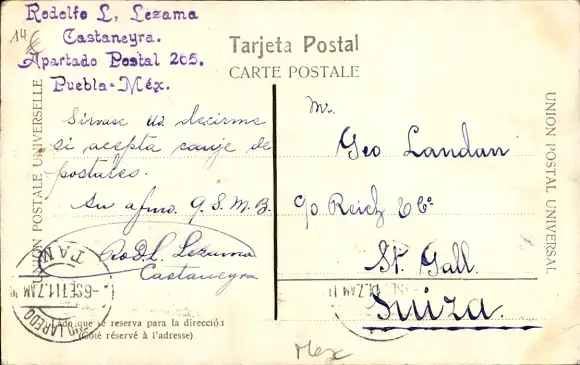 Rodolfo L. Lezama
Castaneyra.
Apartado Postal 205.
Puebla=Méx.
14€
Tarjeta Postal
CARTE POSTALE
UNION POSTALE UNIVERSELLE
UNION POSTAL UNIVERSAL
Sírvase Ud decirme
si acepta canje de
postales.
Su afmo. q.S.M.B.
Rod. L. Lezama
Castaneyra
Mr.
Geo Landan
c/o Reich & Co
St. Gall.
Suiza.
TAM
6 SET 11 7 AM
LAREDO
Lado que se reserva para la dirección
(Coté réservé à l'adresse)
Mex